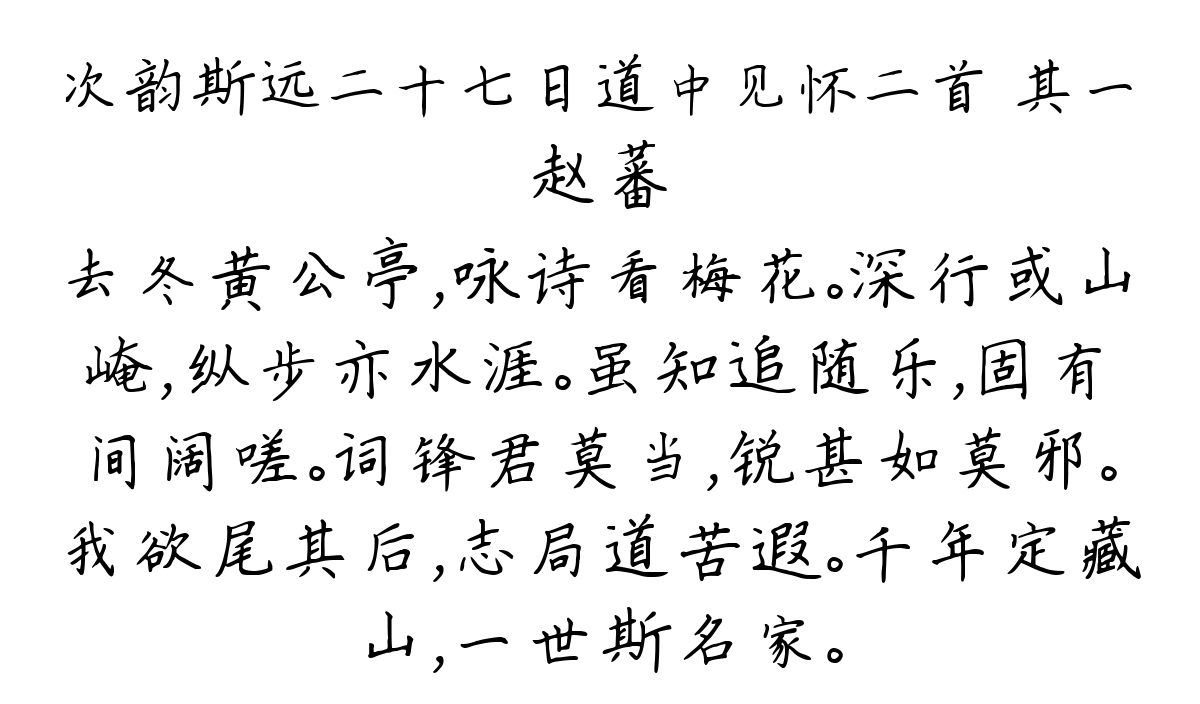 次韵斯远二十七日道中见怀二首 其一
赵蕃
去冬黄公亭,咏诗看梅花。深行或山
崦,纵步亦水涯。虽知追随乐,固有
间阔嗟。词锋君莫当,锐甚如莫邪。
我欲尾其后,志局道苦遐。千年定藏
山,一世斯名家。